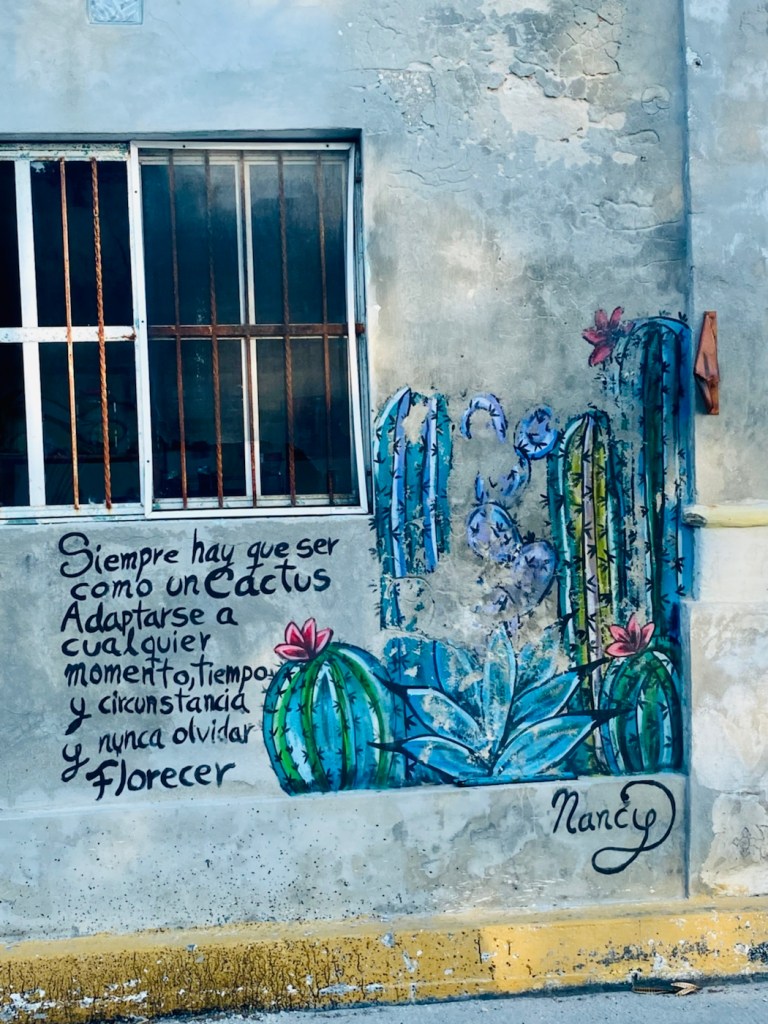 Siempre hay que ser
como un Cactus
Adaptarse a
cualquier
momento, tiempo
y circunstancia
y nunca olvidar
Florecer
Nancy